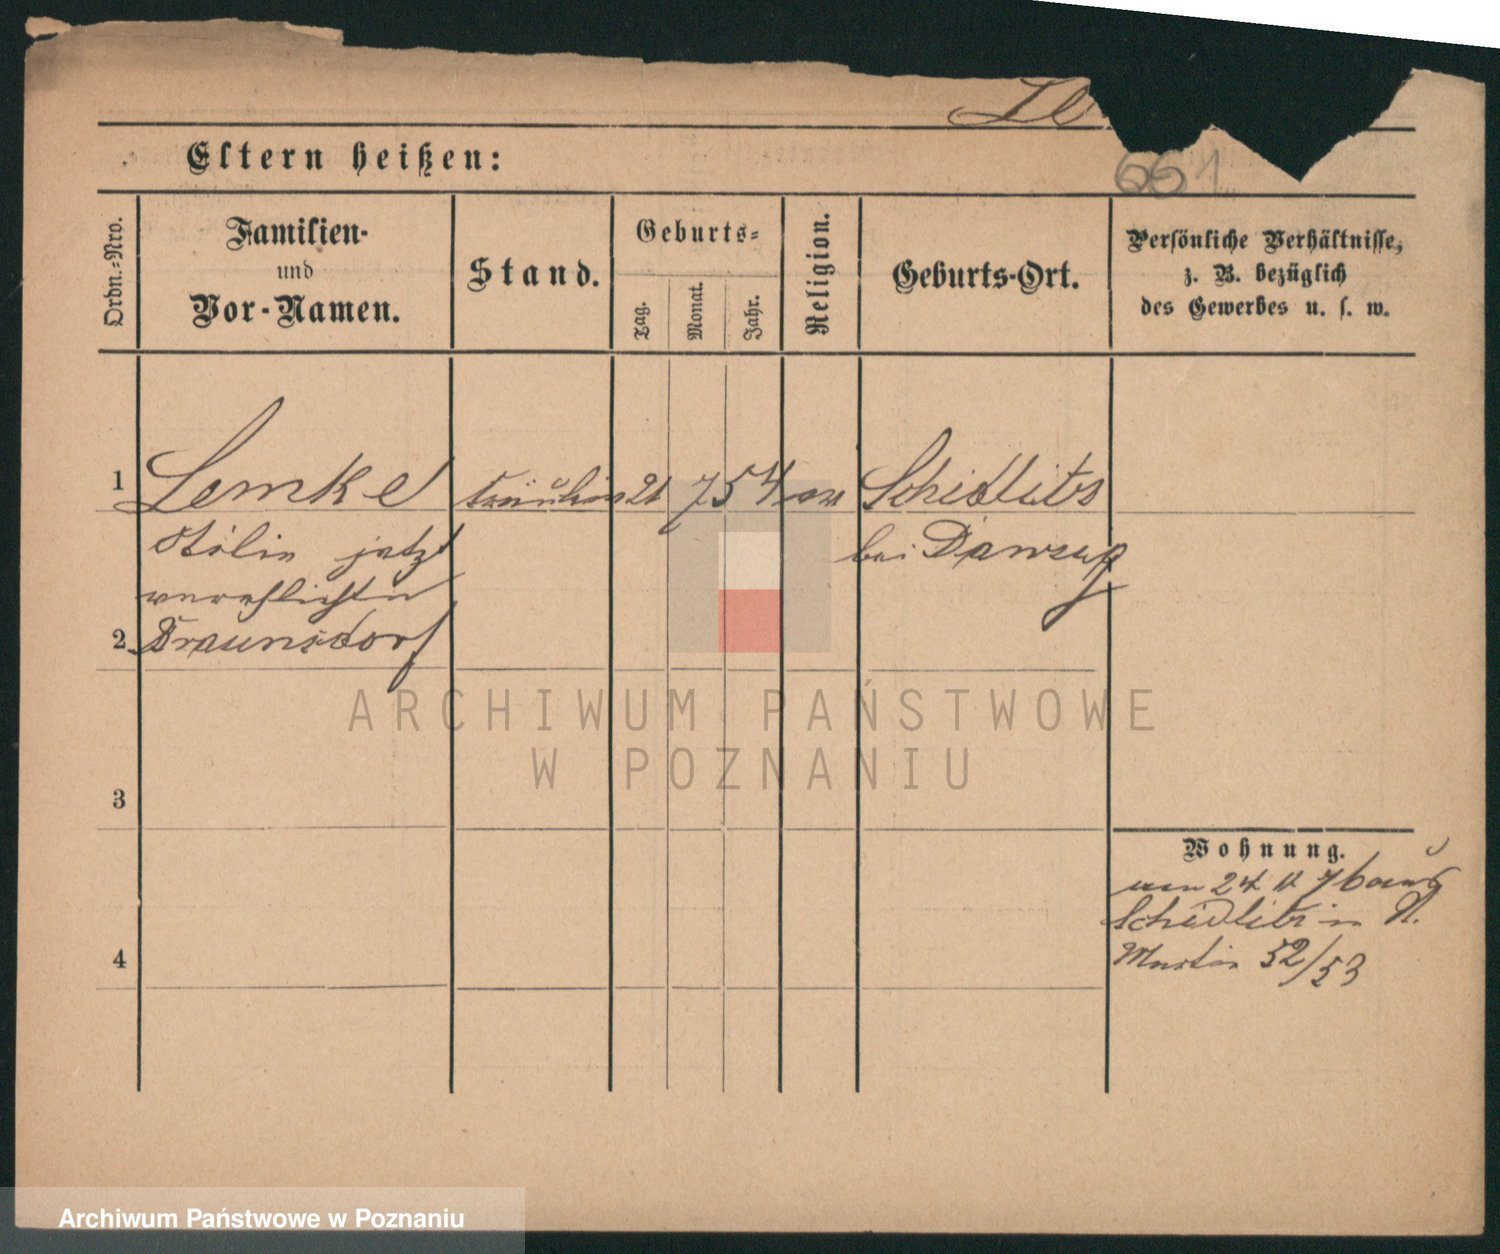 Le
661
Eltern heißen:
Ordn.-Nro.
Familien-
und
Vor-Namen.
Stand.
Geburts-
Tag.
Monat.
Jahr.
Religion.
Geburts-Ort.
Persönliche Verhältnisse,
z. B. bezüglich
des Gewerbes u. s. w.
1 Lemke Fräulein 21 7 54 ev Schidlitz
jetzt bei Danzig
verehlichte
2 Braunsdorf
ARCHIWUM PAŃSTWOWE
W POZNANIU
3
Wohnung.
24 11 76
Schidlitz in St.
4 Martin 52/53
Archiwum Państwowe w Poznaniu